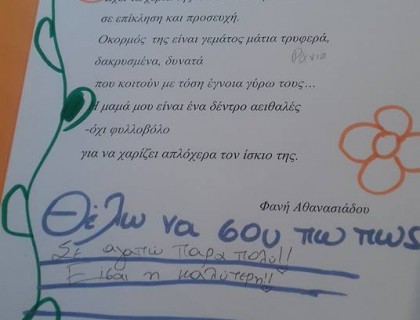 σε επίκληση και προσευχή.
Οκορμός της είναι γεμάτος μάτια τρυφερά,
δακρυσμένα, δυνατά
Ράνια
που κοιτούν με τόση έγνοια γύρω τους...
Η μαμά μου είναι ένα δέντρο αειθαλές
-όχι φυλλοβόλο
για να χαρίζει απλόχερα τον ίσκιο της.
Φανή Αθανασιάδου
Θέλω να σου πω πως
Σε αγαπώ πάρα πολύ!!
Είσαι η καλύτερη!!